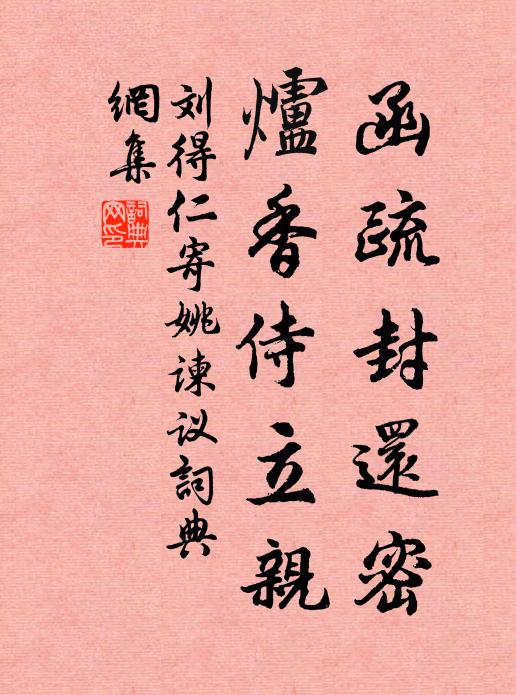 函疏封還密
爐香侍立親
刘得仁寄姚谏议詞典
網集
詞典網印